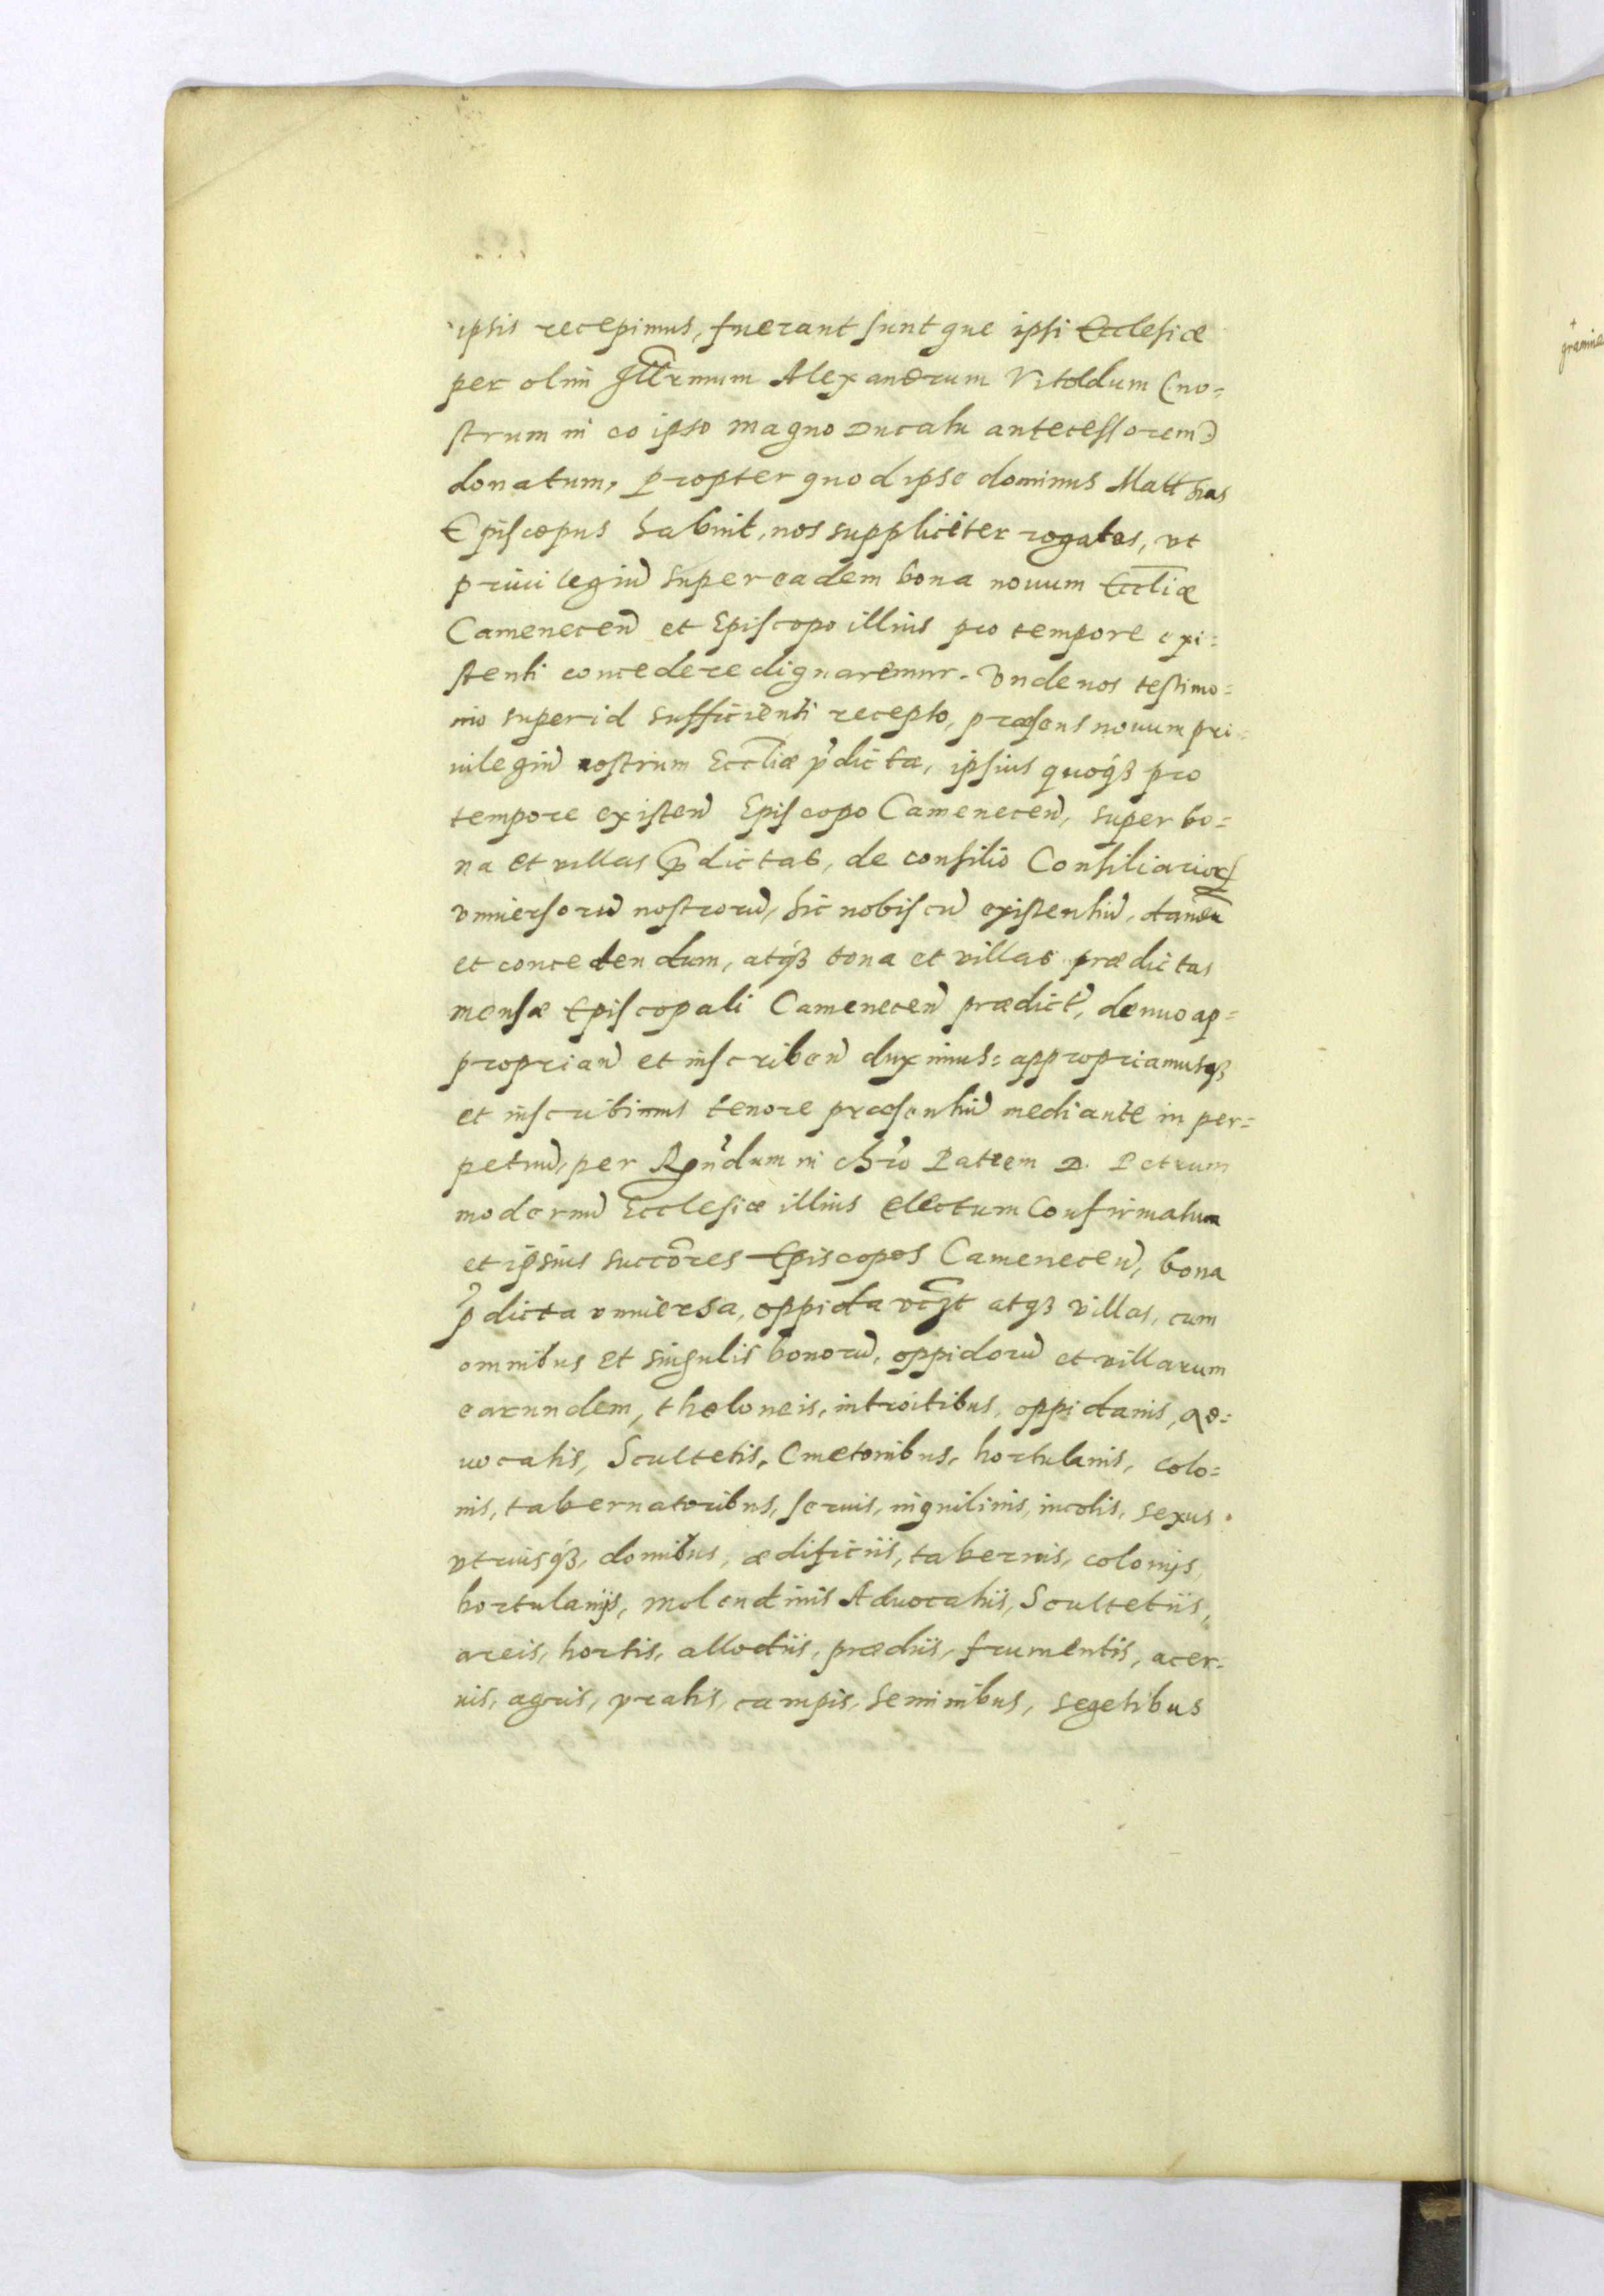 ipsis recepimus, fuerant sunt que ipsi Ecclesiæ
per olim Illrmum Alexandrum Vitoldum (no=
strum in eo ipso magno Ducatu antecessorem)
donatum, Propter quod ipse dominus Matthias
Episcopus habuit, nos suppliciter rogatos, vt
priuilegiũ super eadem bona nouum Eccliæ
Camenecen̄ et Episcopo illius pro tempore exi=
stenti concedere dignaremur. Vnde nos testimo=
nio super id sufficienti recepto, præsens nouum pri=
uilegiũ nostrum Eccliæ p̃dictæ, ipsius quoqȝ pro
tempore existen̄ Episcopo Camenecen̄, super bo=
na et villas p̃dictas, de consilio Consiliarioꝝ
vniuersorũ nostrorũ, hic nobiscũ existentiũ, danđu
et concedendum, atqȝ bona et villas prædictas
mensæ Episcopali Camenecen̄ prædict̃, denuo ap=
proprian̄ et inscriben̄ duximus: appropriamusqȝ
et inscribimus tenore præsentiũ mediante in per=
petuũ, per Rn̄dum in chr̃o Patrem D. Petrum
modernũ Ecclesiæ illius electum Confirmatum
et ipsius succõres Episcopos Camenecen̄, bona
p̃dicta vniuersa, oppida vcȝt atqȝ villas, cum
omnibus et singulis bonorũ, oppidorũ et villarum
earundem, theloneis, introitibus, oppidanis, Ad=
uocatis, Scultetis, Cmetonibus, hortulanis, colo=
nis, tabernatoribus, seruis, inquilinis, incolis, sexus
vtriusqȝ, domibus, ædificiis, tabernis, colonijs,
hortulanijs, molendinis Aduocatiis, Scultetiis,
areis, hortis, allodiis, prædiis, frumentis, acer=
uis, agris, pratis, campis, seminibus, segetibus